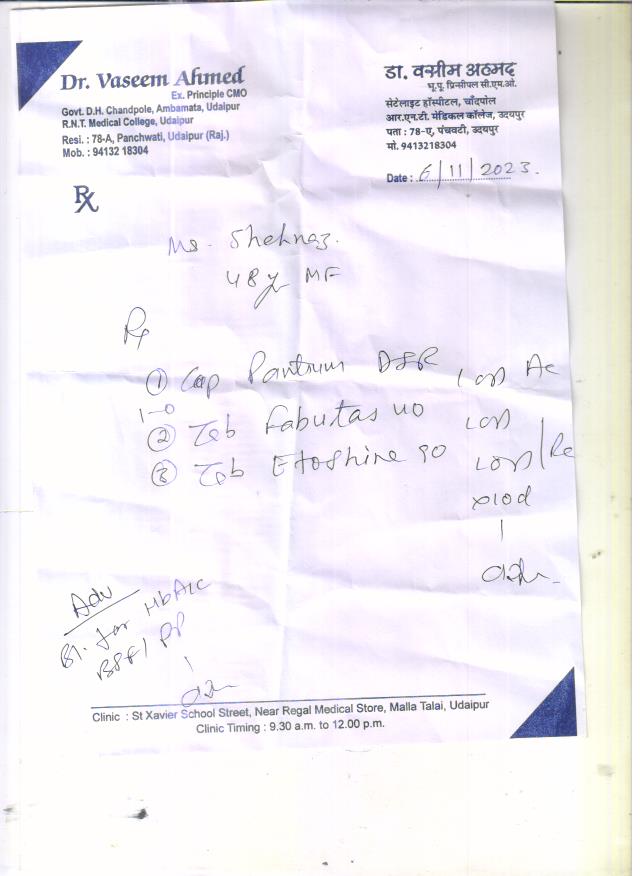 Dr. Vaseem Ahmed
Ex. Principle CMO
Govt. D.H. Chandpole, Ambamata, Udaipur
R.N.T. Medical College, Udaipur
Resi. : 78-A, Panchwati, Udaipur (Raj.)
Mob. : 94132 18304
डा. वसीम अहमद
भू.पू. प्रिन्सीपल सी.एम.ओ.
सेटेलाइट हॉस्पीटल, चाँदपोल
आर.एन.टी. मेडिकल कॉलेज, उदयपुर
पता : 78-ए, पंचवटी, उदयपुर
मो. 9413218304
Date : 6/11/2023.
Rx
Ms. Shehnaz.
48y MF
Rx
① Cap Pantrum DSR 1 OD AC
1-0
② Tab Fabutas 40 1 OD
③ Tab Etoshine 90 1 OD
x10d
Adv
Bl. for HbA1c
BSF/PP
Clinic : St Xavier School Street, Near Regal Medical Store, Malla Talai, Udaipur
Clinic Timing : 9.30 a.m. to 12.00 p.m.